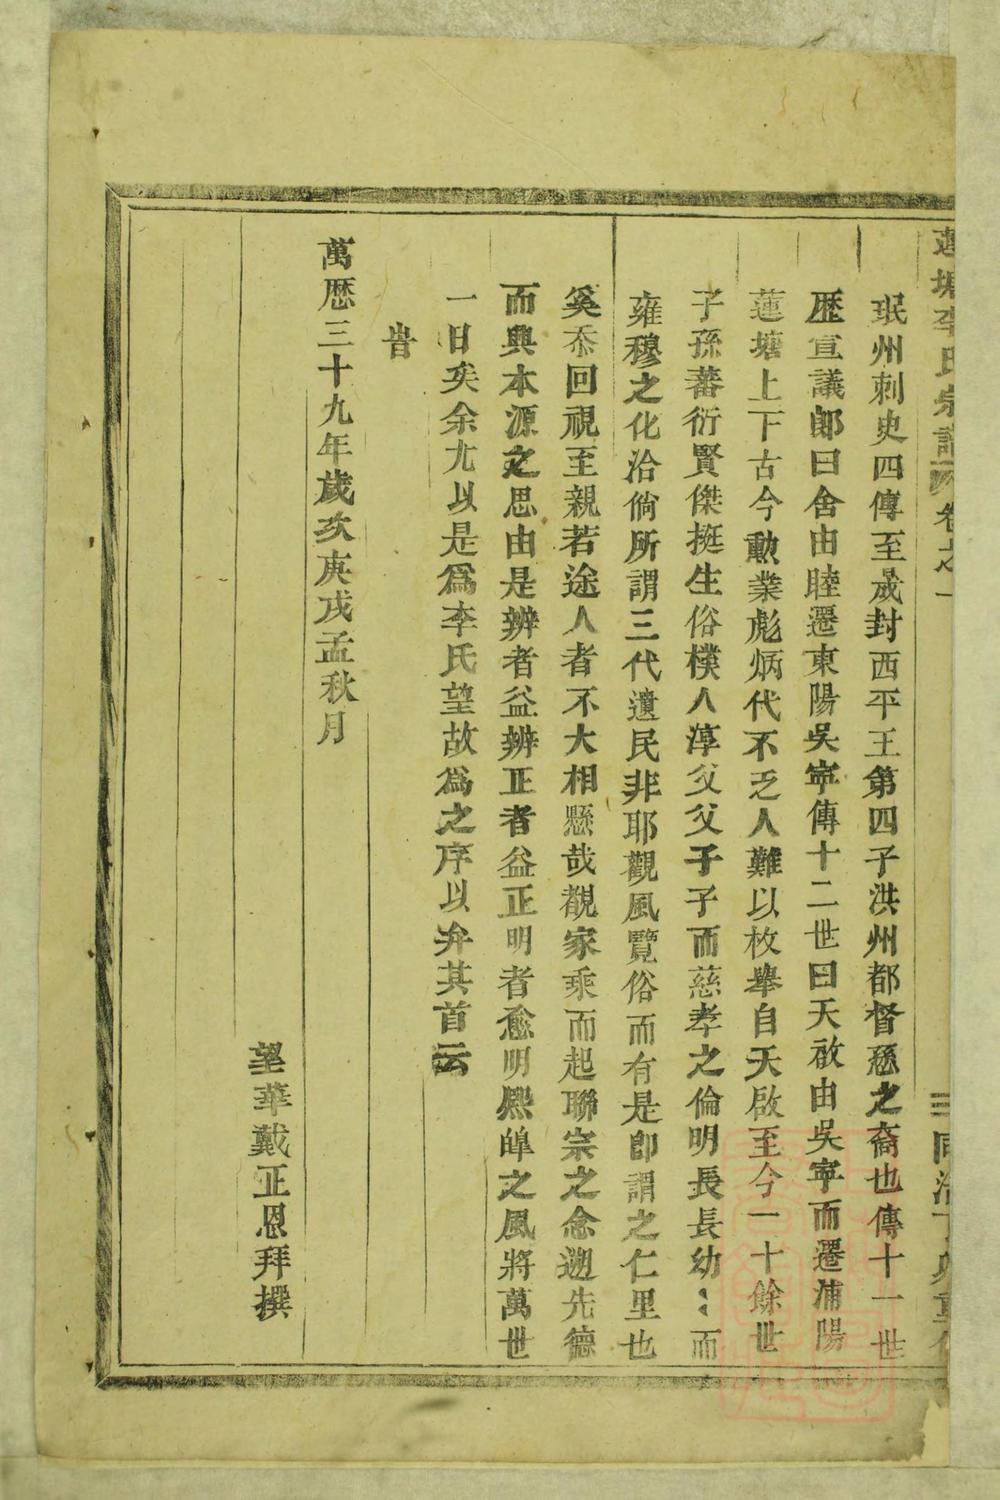 蓮塘李氏宗譜 卷之一 三 同治丁卯重修
珉州刺史四傳至晟封西平王第四子洪州都督憑之裔也傳十一世
歷宣議郎曰舍由睦遷東陽吳寧傳十二世曰天啟由吳寧而遷浦陽
蓮塘上下古今勲業彪炳代不乏人難以枚舉自天啟至今一十餘世
子孫蕃衍賢傑挺生俗樸人淳父父子子而慈孝之倫明長長幼〻而
雍穆之化洽倘所謂三代遺民非耶觀風覽俗而有是即謂之仁里也
奚忝回視至親若途人者不大相懸哉覩家乘而起聯宗之念遡先德
而興本源之思由是辨者益辨正者益正明者愈明熙皥之風將萬世
一日矣余尤以是爲李氏望故爲之序以弁其首云
旹
萬歷三十九年歲次庚戌孟秋月
望華戴正恩拜撰